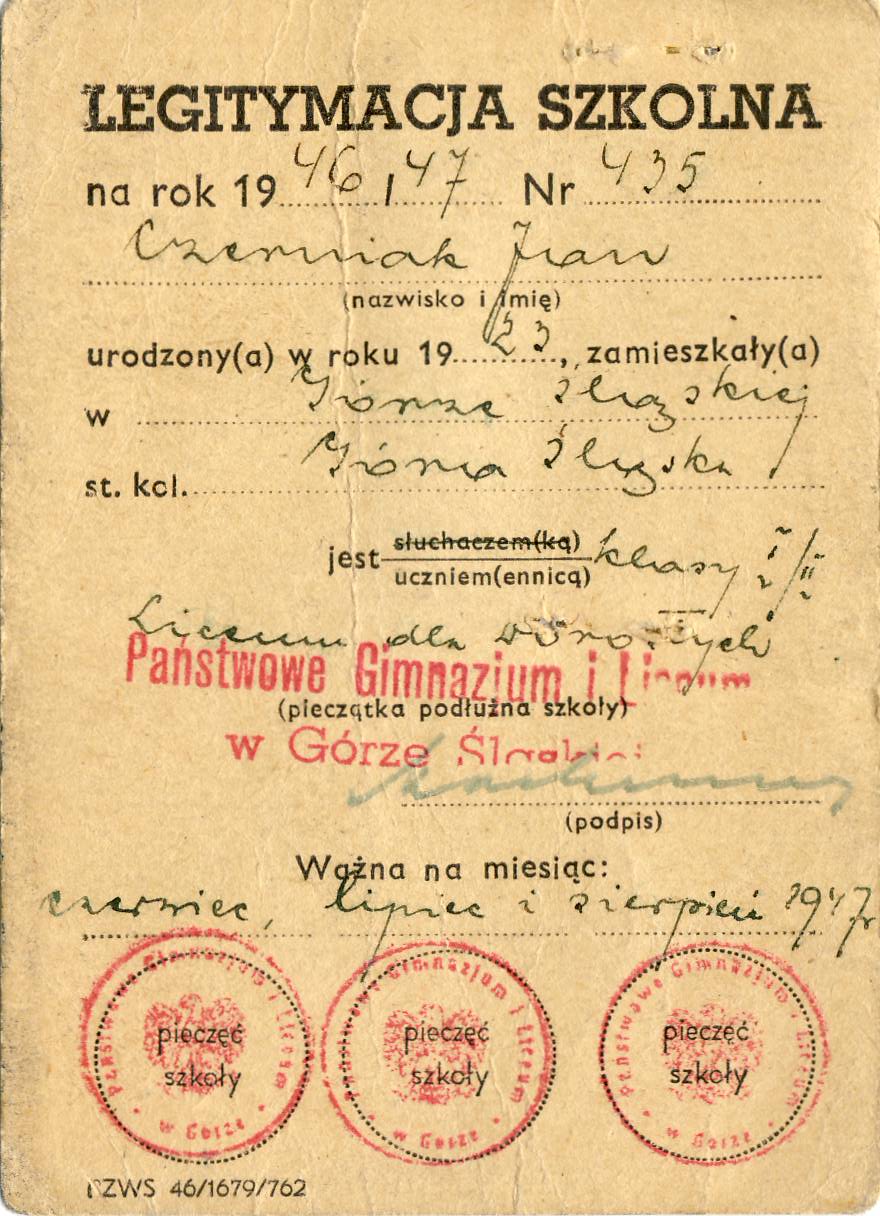 LEGITYMACJA SZKOLNA
na rok 19 46 / 47 Nr 435
Czerniak Jan
(nazwisko i imię)
urodzony(a) w roku 19 23, zamieszkały(a)
w Górze Śląskiej
st. kol. Góra Śląska
jest słuchaczem(ką) klasy I/II
uczniem(ennicą)
Liceum dla Dorosłych
Państwowe Gimnazjum i Liceum
(pieczątka podłużna szkoły)
w Górze Śląskiej
(podpis)
Ważna na miesiąc:
czerwiec, lipiec i sierpień 1947 r
Państwowe Gimnazjum i Liceum w Górze
pieczęć szkoły
Państwowe Gimnazjum i Liceum w Górze
pieczęć szkoły
Państwowe Gimnazjum i Liceum w Górze
pieczęć szkoły
PZWS 46/1679/762